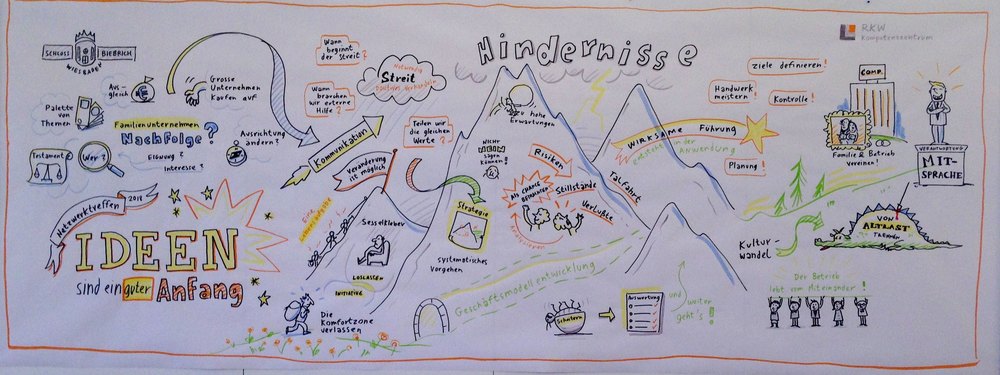 SCHLOSS BIEBRICH
WIESBADEN
Palette
von
Themen
Aus-
gleich
Grosse
Unternehmen
kaufen auf
Familienunternehmen
Nachfolge?
Testament
Wer?
EIGNUNG?
INTERESSE?
Ausrichtung
ändern?
Netzwerktreffen 2018
IDEEN
sind ein guter
Anfang
Wann
beginnt
der Streit?
Wann
brauchen
wir externe
Hilfe?
Streit
Notwendig
Teilen wir
die gleichen
Werte?
Kommunikation
Veränderung
ist möglich
Eine
Lebensaufgabe
Sesselkleber
LOSLASSEN
INITIATIVE
Die
Komfortzone
verlassen
Hindernisse
zu hohe
Erwartungen
NICHT
NEIN
sagen
können!
Strategie
systematisches
Vorgehen
Risiken
ALS
CHANCE
BETRACHTEN
Analysieren
Stillstände
Verluste
Talfahrt
Geschäftsmodellentwicklung
Scheitern
Auswertung
und
weiter
geht's!
WIRKSAME FÜHRUNG
entsteht in der
Anwendung
ziele definieren!
Handwerk
meistern!
Kontrolle!
Planung!
RKW
Kompetenzzentrum
COMP.
Familie & Betrieb
vereinen!
VERANTWORTUNG
MIT-
SPRACHE
Kultur-
wandel
VON
ALTLAST
TRENNEN
Der Betrieb
lebt vom Miteinander!